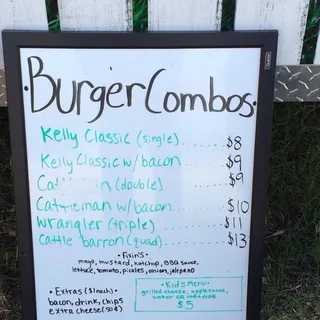 Burger Combos
Kelly Classic (single) ..... $8
Kelly Classic w/bacon .... $9
(double) ..... $9
w/bacon ..... $10
Wrangler (triple) ..... $11
Cattle barron (quad) ..... $13
• Fixin's •
mayo, mustard, ketchup, BBQ sauce,
lettuce, tomato, pickles, onion, jalepano
• Extras ($1 each) •
bacon, drink, chips
extra cheese (50¢)
• Kid's Menu •
grilled cheese, applesauce,
water or drink
$5